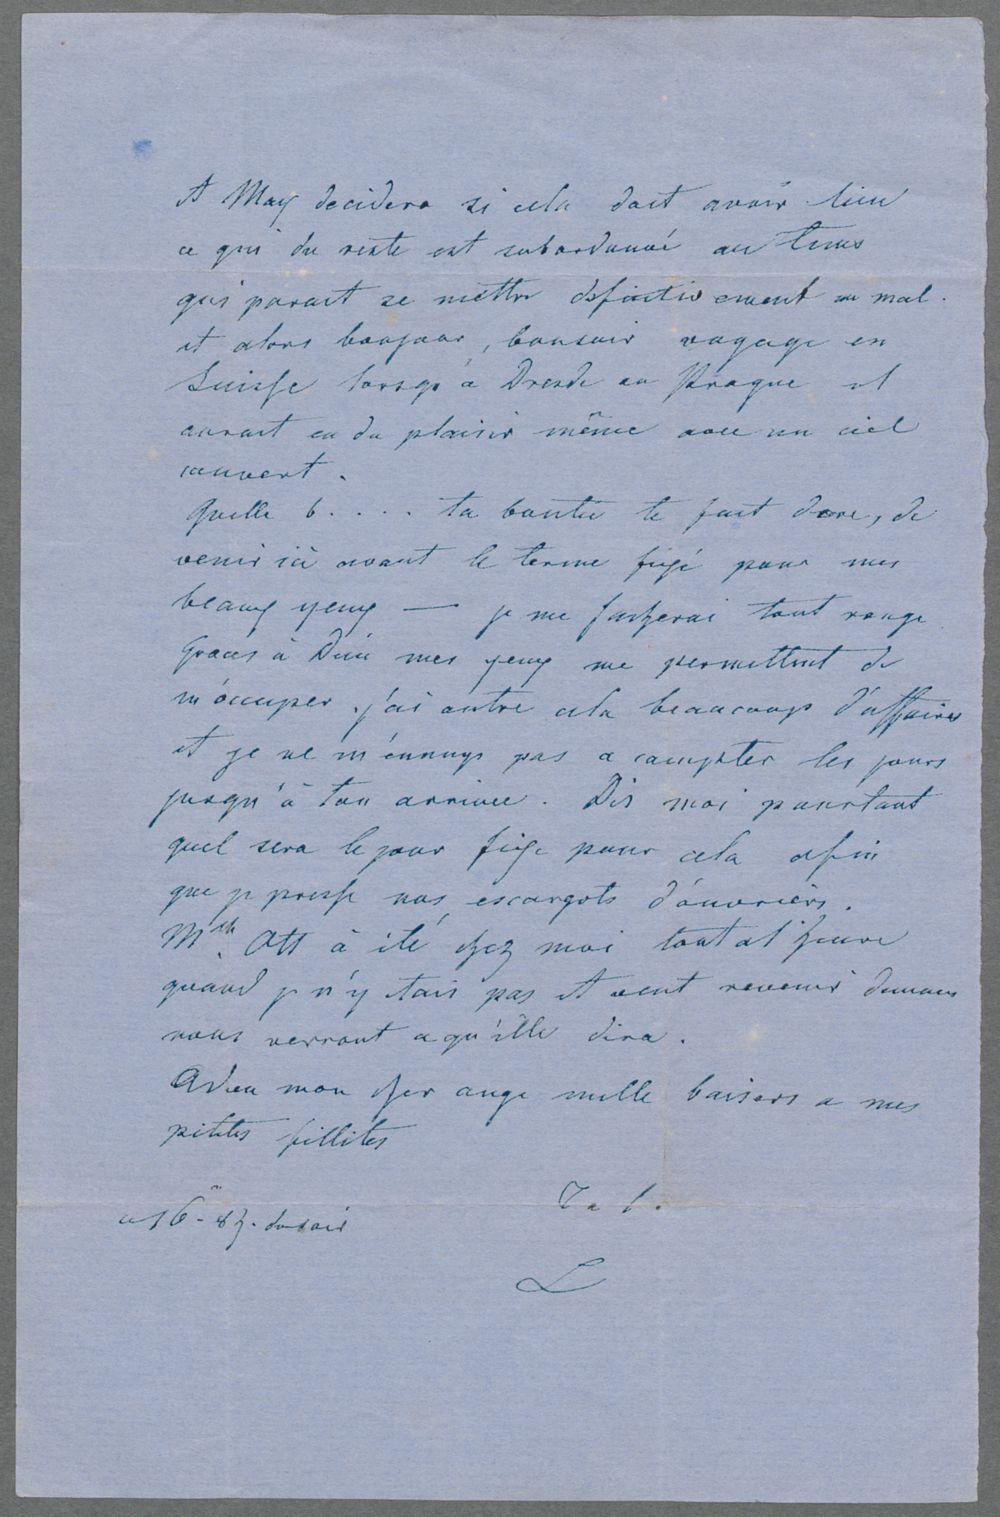 et Max decidera si cela doit avoir lieu
ce qui du reste est subordonné au tems
qui parait se mettre definitivement au mal.
et alors bonjour, bonsoir voyage en
Suisse lorsqu'a Dresde ou Prague il
aurait eu du plaisir même avec un ciel
couvert.
Quelle b.... ta bontée te fait dire, de
venir ici avant le terme fixé pour mes
beaux yeux — je me facherai tout rouge
Graces à Dieu mes yeux me permettent de
m'occuper. j'ai outre cela beaucoup d'affaires
et je ne m'ennuye pas a compter les jours
jusqu'à ton arrivée. Dis moi pourtant
quel sera le jour fixe pour cela afin
que je presse nos escargots d'ouvriers.
Ott à été chez moi tout al'heure
quand je n'y etais pas et veut revenir demain
nous verront ce qu'elle dira.
Adieu mon cher ange mille baisers a mes
petites fillites
T a l.
ce 16 - 8 h. du soir
L